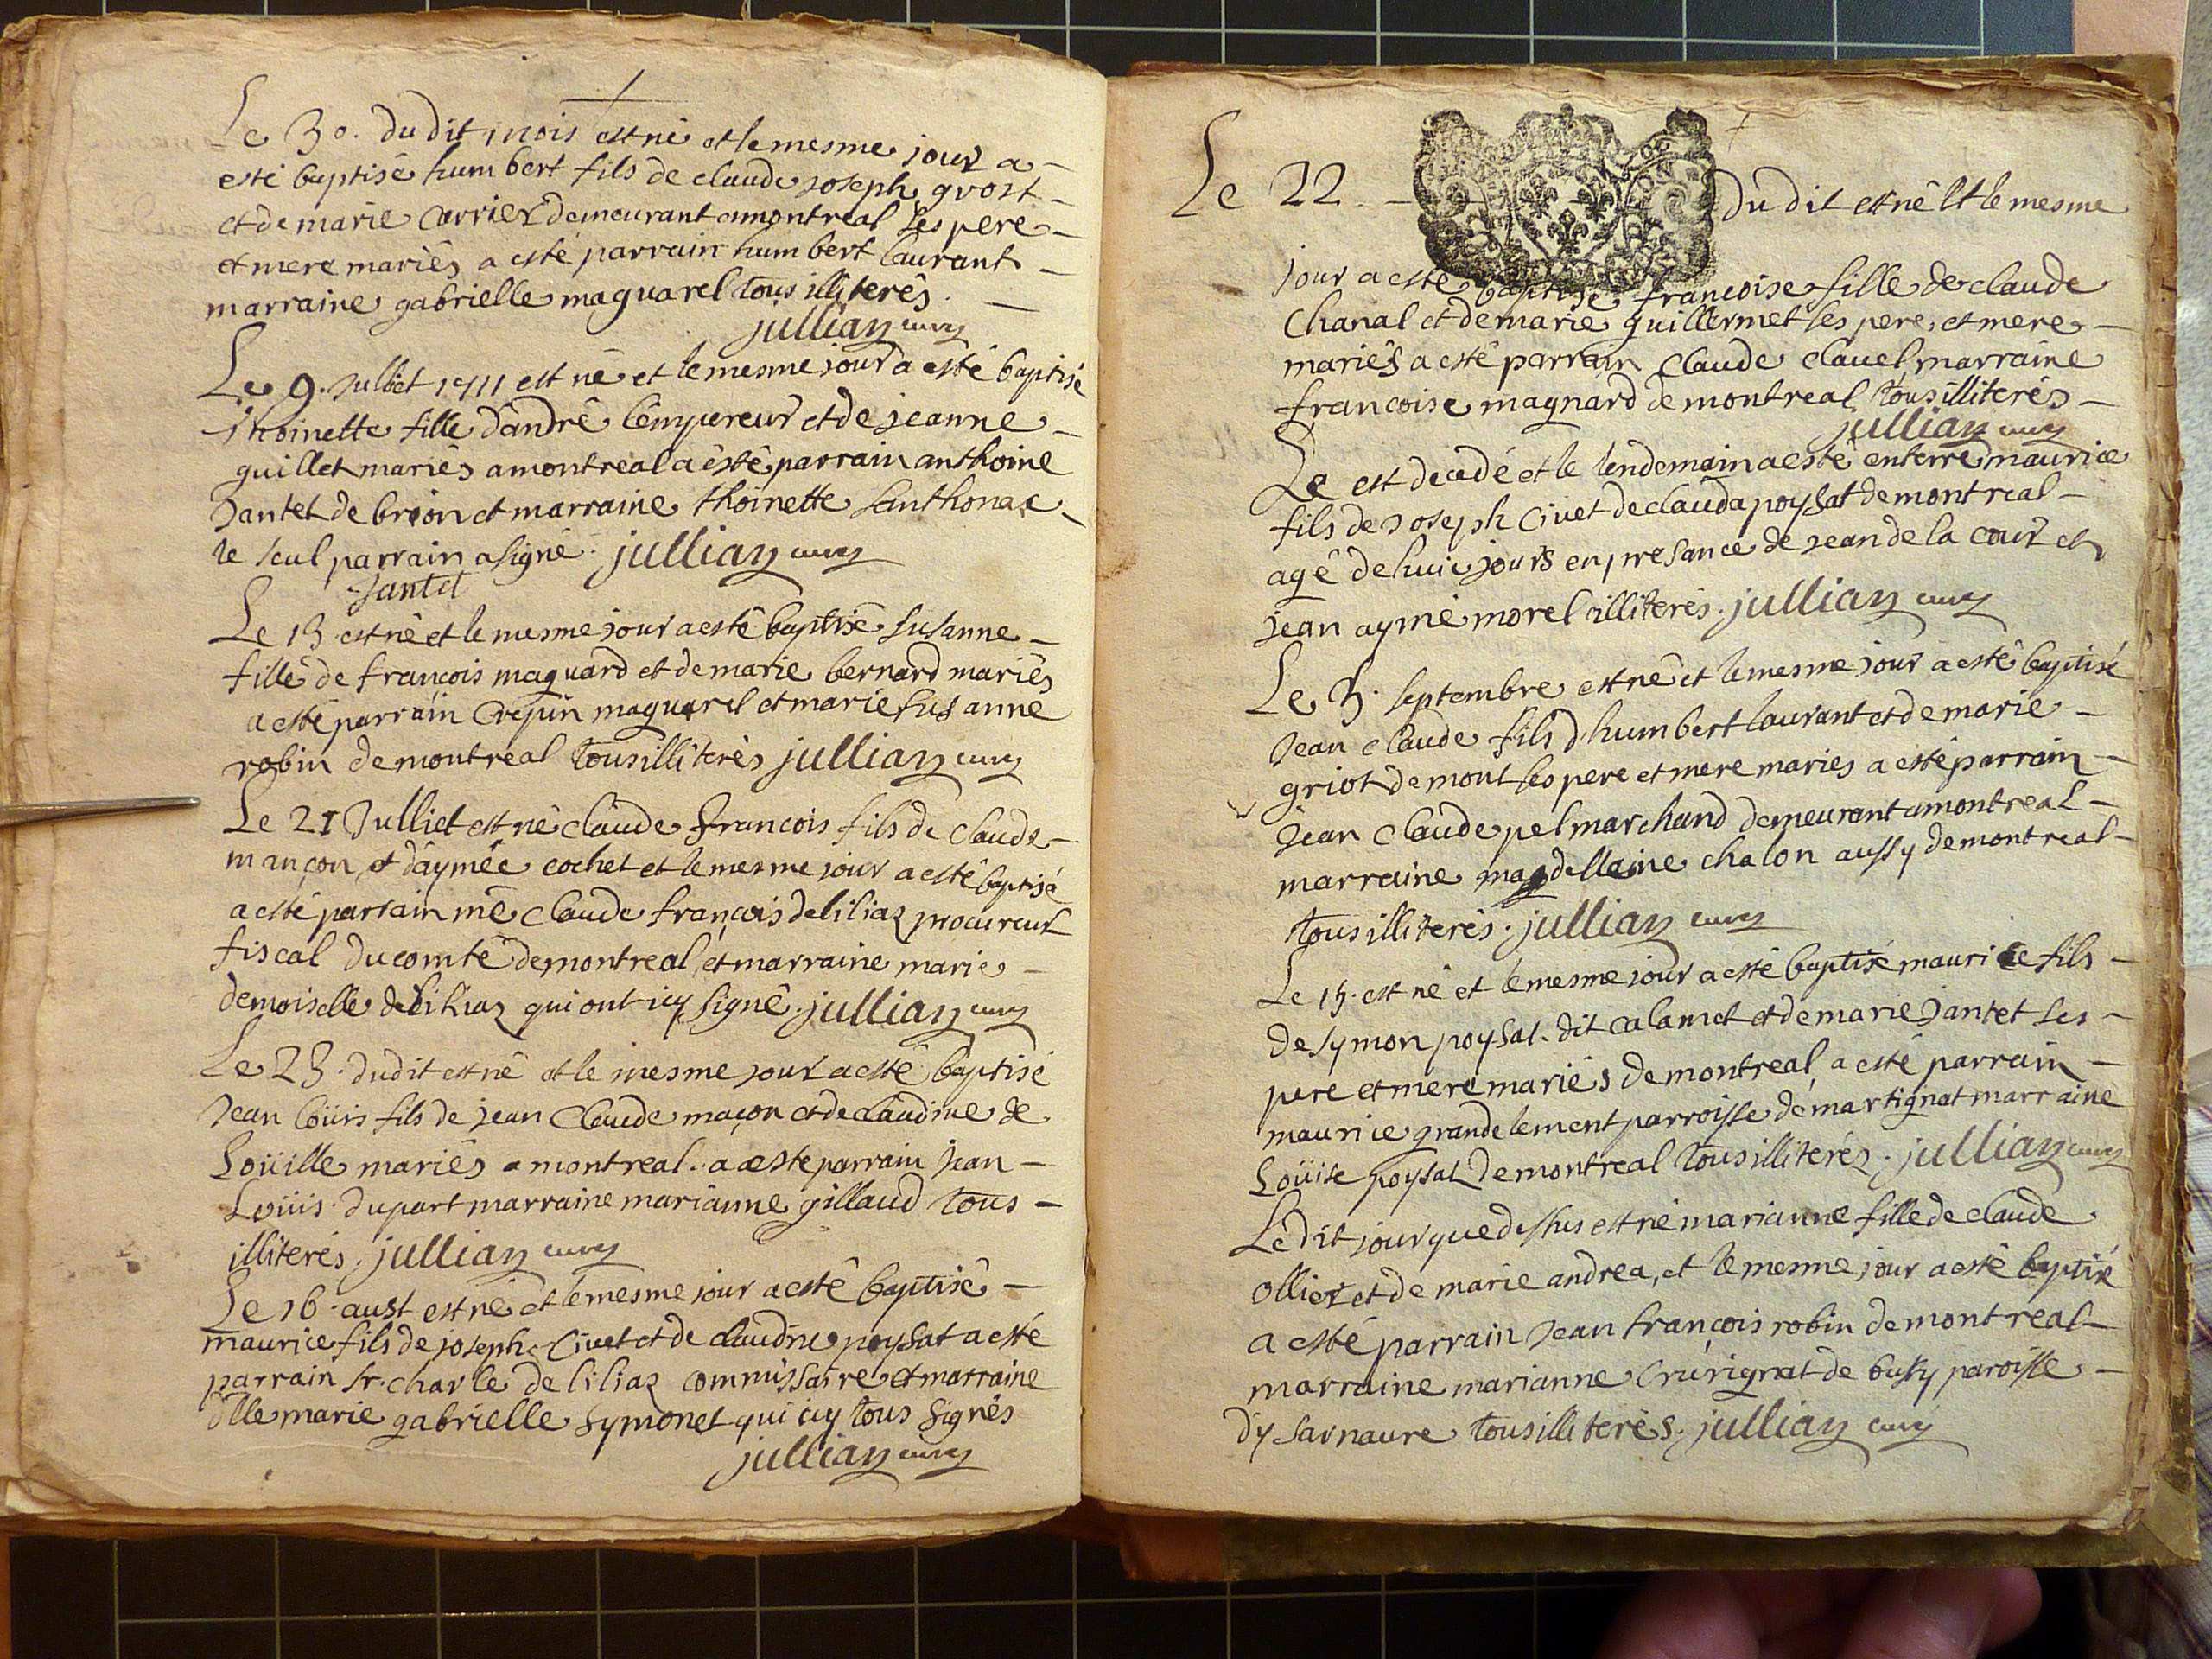 Le 30. du dit mois est né et le mesme jour a
esté baptisé humbert fils de claude joseph grost
et de marie Carrier demeurant a montreal ses pere
et mere mariés a esté parrain humbert laurant
marraine gabrielle maguarel tous illiterés.
jullian curé
Le 9. Julliet 1711 est né et le mesme jour a esté baptisé
thoinette fille d'andré lempereur et de jeanne
guillet mariés a montreal a esté parrain anthoine
Jantet de brion et marraine thoinette santhonac
le seul parrain a signé. jullian curé
Jantet
Le 13 est né et le mesme jour a esté baptisé susanne
fille de francois maguard et de marie bernard mariés
a esté parrain Crepin maguarel et marie susanne
robin de montreal tous illiterés jullian curé
Le 21 Julliet est né claude francois fils de claude
mançon et d'aymée cochet et le mesme jour a esté baptisé
a esté parrain mè Claude françois deliliaz procureur
fiscal du comté de montreal, et marraine marie
demoiselle deliliaz qui ont icy signé. jullian curé
Le 23. du dit est né et le mesme jour a esté baptisé
Jean loüis fils de jean Claude maçon et de claudine de
Loüille mariés a montreal. a esté parrain Jean
Loüis dupart marraine marianne gillaud tous
illiterés. jullian curé
Le 16. aust est né et le mesme jour a esté baptisé
maurice fils de joseph Civet et de claudine poysat a esté
parrain sr. charle de liliaz commissaire et marraine
dlle marie gabrielle symonet qui icy tous signés
jullian curé
Le 22 du dit est né et le mesme
jour a esté baptisé francoise fille de claude
Chanal et de marie guillermet ses pere, et mere
mariés a esté parrain Claude clavel marraine
francoise magnard de montreal tous illiterés
jullian curé
Le est decedé et le lendemain a esté enterré maurice
fils de Joseph Civet de clauda poysat de montreal
agé de huic jours en presance de jean de la cour et
jean aymé morel illiterés. jullian curé
Le 3. septembre est né et le mesme jour a esté baptisé
Jean claude fils d'humbert laurant et de marie
griot de mont ses pere et mere mariés a esté parrain
Jean claude pel marchand demeurant a montreal
marraine magdelleine chalon aussy de montreal
tous illiterés. jullian curé
Le 15. est né et le mesme jour a esté baptisé maurice fils
de symon poysat. dit calamet et de marie Jantet ses
pere et mere mariés de montreal, a esté parrain
maurice grandclement parroisse de martignat marraine
Loüise poysat de montreal tous illiterés. jullian curé
Le dit jour que dessus est né marianne fille de claude
ollier et de marie andrea, et le mesme jour a esté baptisé
a esté parrain Jean françois robin de montreal
marraine marianne Cruvignat de bussy paroisse
d'ysarnaure tous illiterés. jullian curé